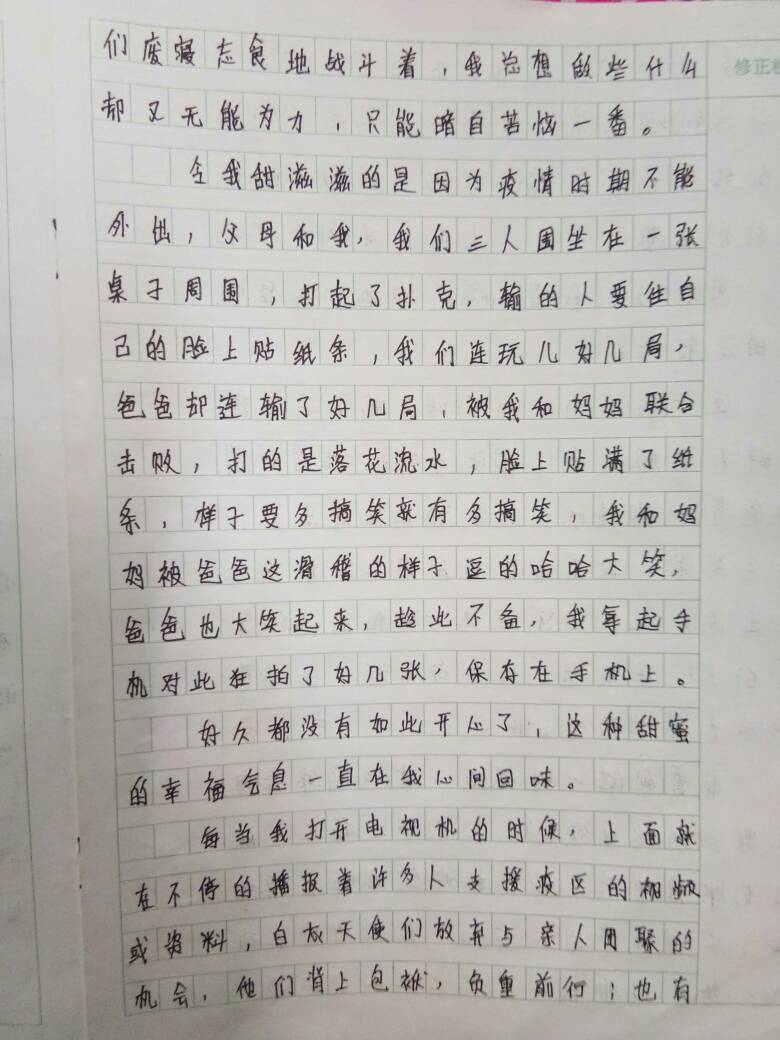 修正栏
们废寝忘食地战斗着，我总想做些什么
却又无能为力，只能暗自苦恼一番。
令我甜滋滋的是因为疫情时期不能
外出，父母和我，我们三人围坐在一张
桌子周围，打起了扑克，输的人要往自
己的脸上贴纸条，我们连玩儿好几局，
爸爸却连输了好几局，被我和妈妈联合
击败，打的是落花流水，脸上贴满了纸
条，样子要多搞笑就有多搞笑，我和妈
妈被爸爸这滑稽的样子逗的哈哈大笑，
爸爸也大笑起来，趁此不备，我拿起手
机对此狂拍了好几张，保存在手机上。
好久都没有如此开心了，这种甜蜜
的幸福气息一直在我心间回味。
每当我打开电视机的时候，上面就
在不停的播报着许多人支援疫区的视频
或资料，白衣天使们放弃与亲人团聚的
机会，他们背上包袱，负重前行；也有